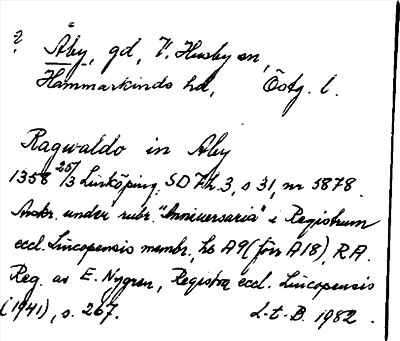 ? Åby, gd, V. Husby sn,
Hammarkinds hd, Östg. l.
Ragwaldo in Aby
1358 25/3 Linköping. SD 7 h. 3, s 31, nr 5878.
Anskr. under rubr. "Anniversaria" i Registrum
eccl. Lincopensis membr., hs A9 (förr A18), RA.
Reg. av E. Nygren, Registra eccl. Lincopensis
(1941), s. 267. L-t-B. 1982.